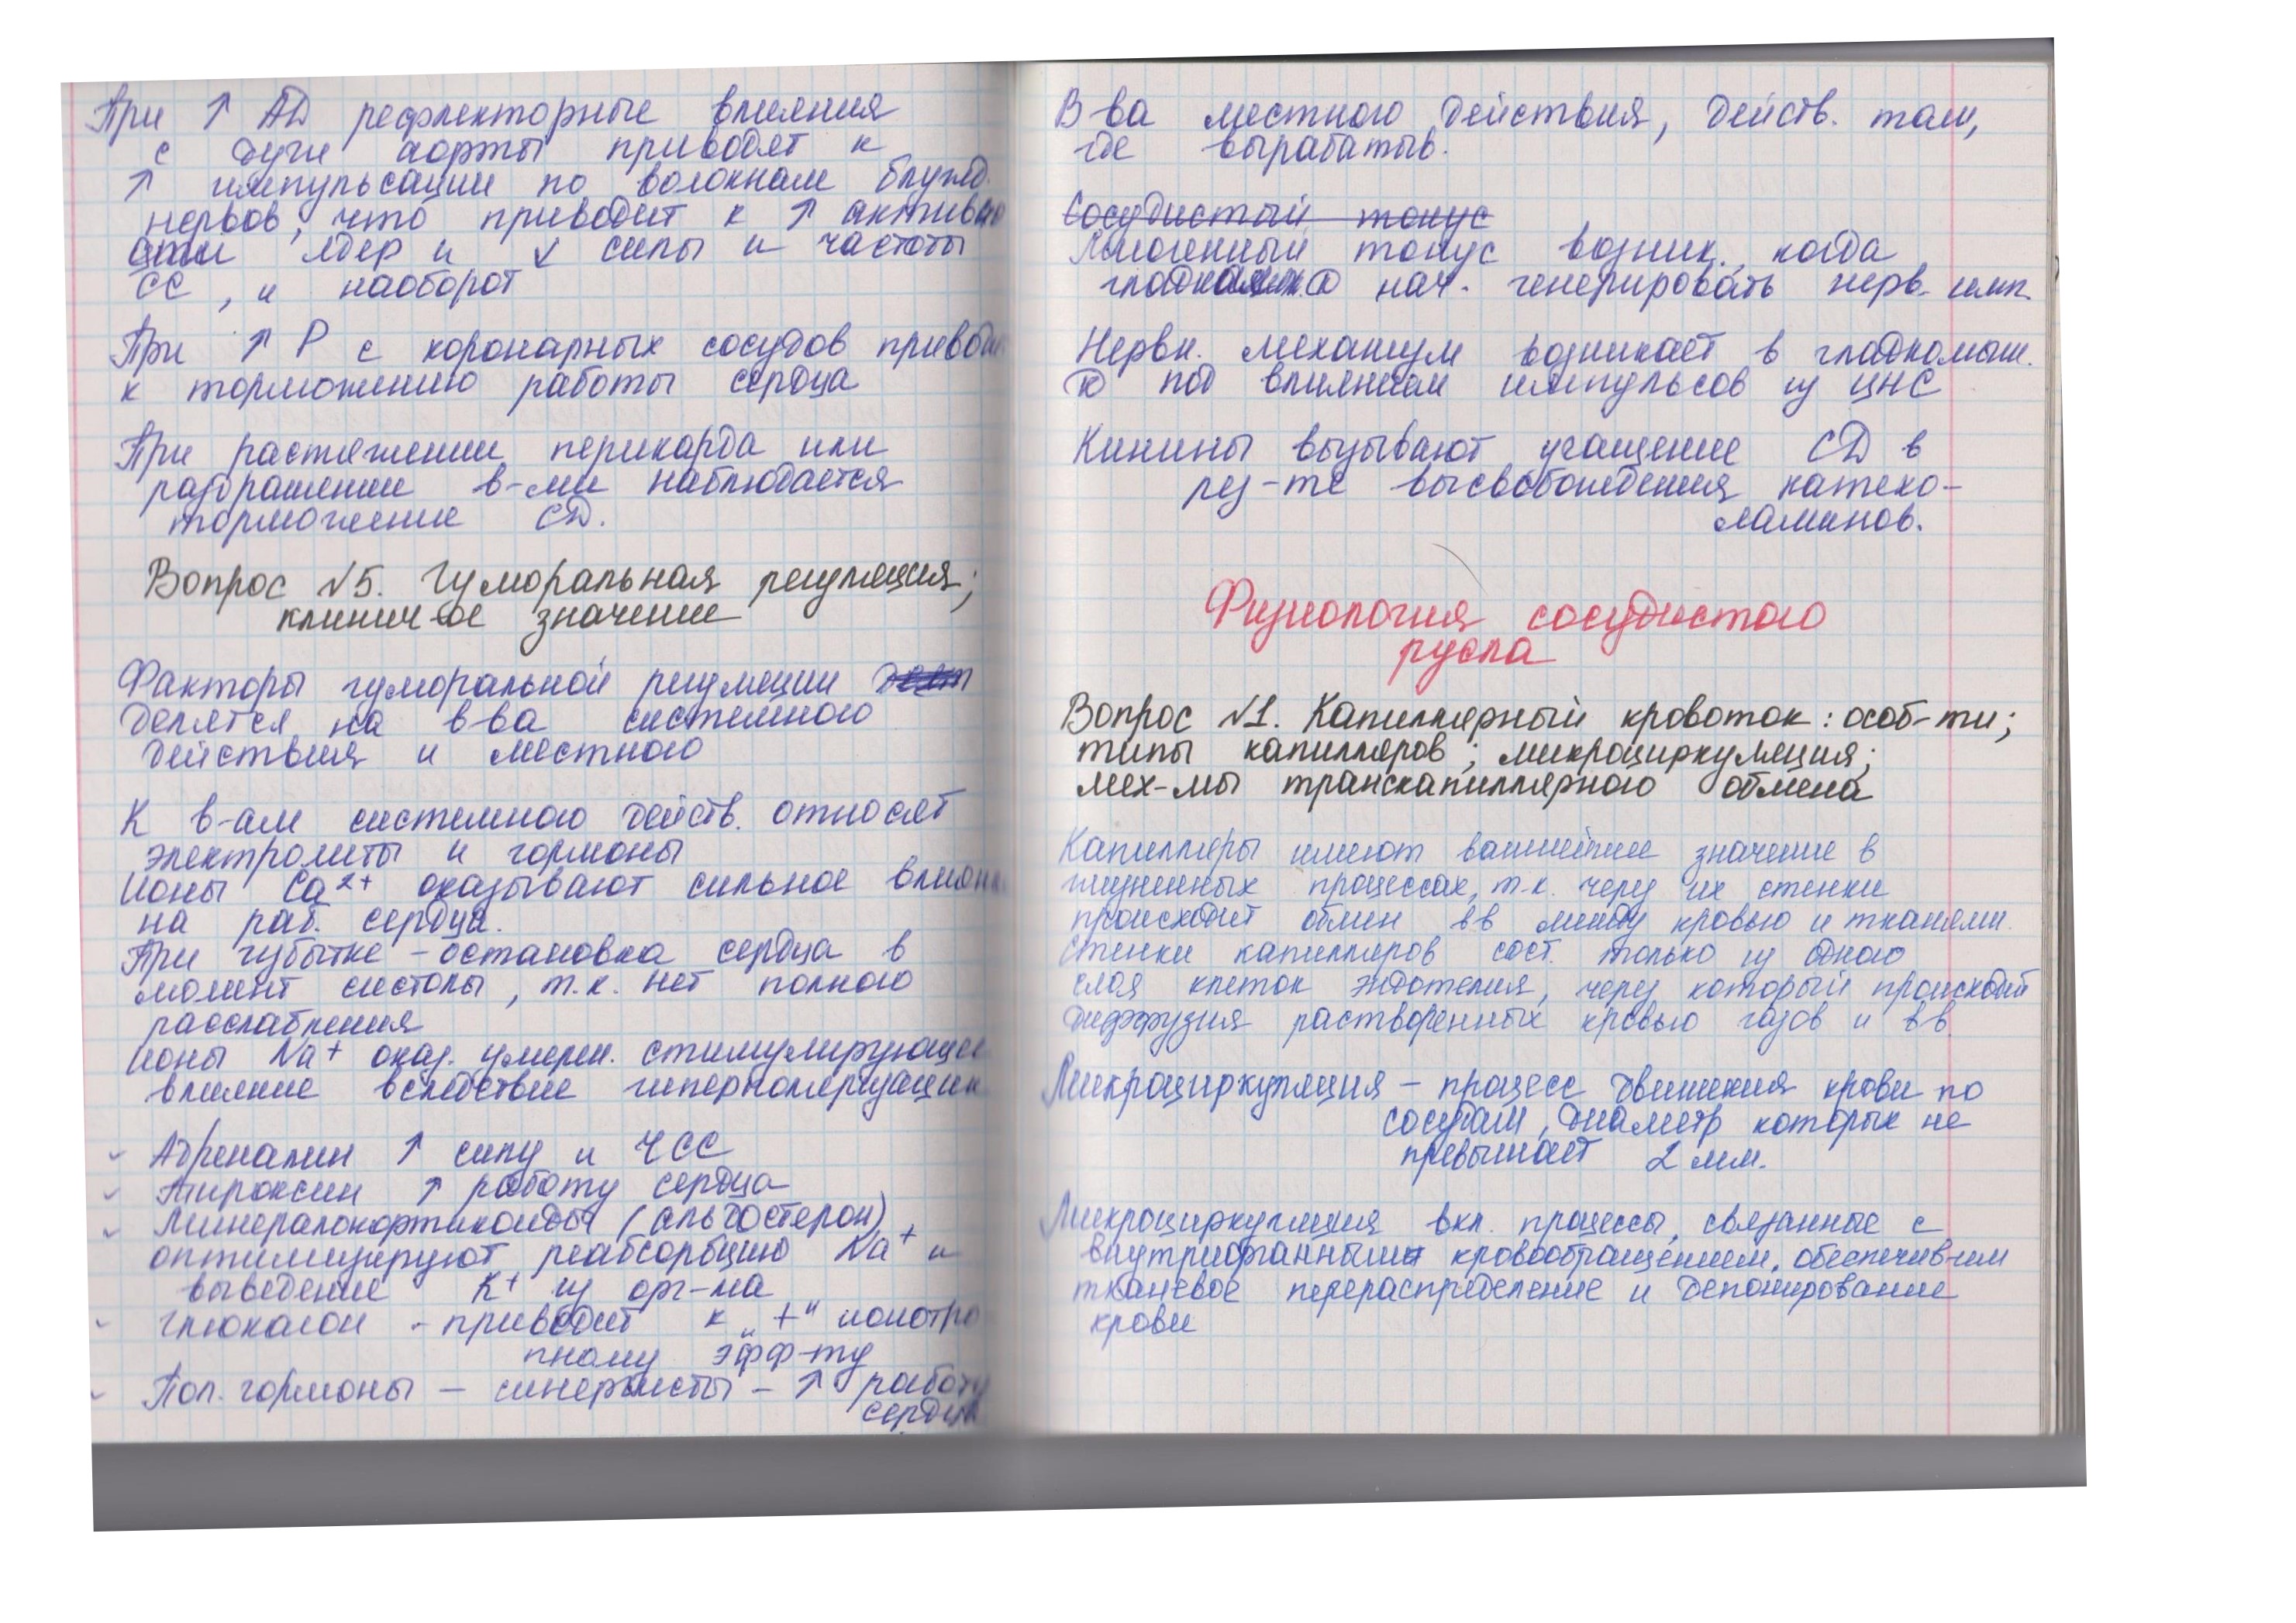 При ↑ АД рефлекторные влияния
с дуги аорты приводят к
↑ импульсации по волокнам блужд.
нервов, что приводит к ↑ активно
сти ядер и ↓ силы и частоты
СС, и наоборот
При ↑ Р с коронарных сосудов приводит
к торможению работы сердца
При растяжении перикарда или
раздражении в-ми наблюдается
торможение СД.
Вопрос №5. Гуморальная регуляция;
клинич-ое значение
Факторы гуморальной регуляции
делятся на в-ва системного
действия и местного
К в-ам системного действ. относят
электролиты и гормоны
Ионы Ca²⁺ оказывают сильное влияние
на раб. сердца.
При избытке - остановка сердца в
момент систолы, т.к. нет полного
расслабления
Ионы Na⁺ оказ. умерен. стимулирующее
влияние вследствие гиперполяризации
✓ Адреналин ↑ силу и ЧСС
✓ Тироксин ↑ работу сердца
✓ Минералокортикоиды (альдостерон)
оптимизируют реабсорбцию Na⁺ и
выведение K⁺ из орг-ма
- глюкагон - приводит к „+" ионотро
пному эфф-ту
- Пол. гормоны – синергисты – ↑ работу
сердца
В-ва местного действия, действ. там,
где вырабатыв.
Сосудистый тонус
Миогенный тонус возник., когда
гладкая нач. генерировать нерв. имп.
Нервн. механизм возникает в гладкомыш.
под влиянием импульсов из ЦНС
Кинины вызывают учащение СД в
рез-те высвобождения катехо-
ламинов.
Физиология сосудистого
русла
Вопрос №1. Капиллярный кровоток: особ-ти;
типы капилляров; микроциркуляция;
мех-мы транскапиллярного обмена
Капилляры имеют важнейшее значение в
жизненных процессах, т.к. через их стенки
происходит обмен в-в между кровью и тканями.
Стенки капилляров сост. только из одного
слоя клеток эндотелия, через который происходит
диффузия растворенных кровью газов и в-в.
Микроциркуляция – процесс движения крови по
сосудам, диаметр которых не
превышает 2 мм.
Микроциркуляция вкл. процессы, связанные с
внутриорганным кровообращением, обеспечив-им
тканевое перераспределение и депонирование
крови